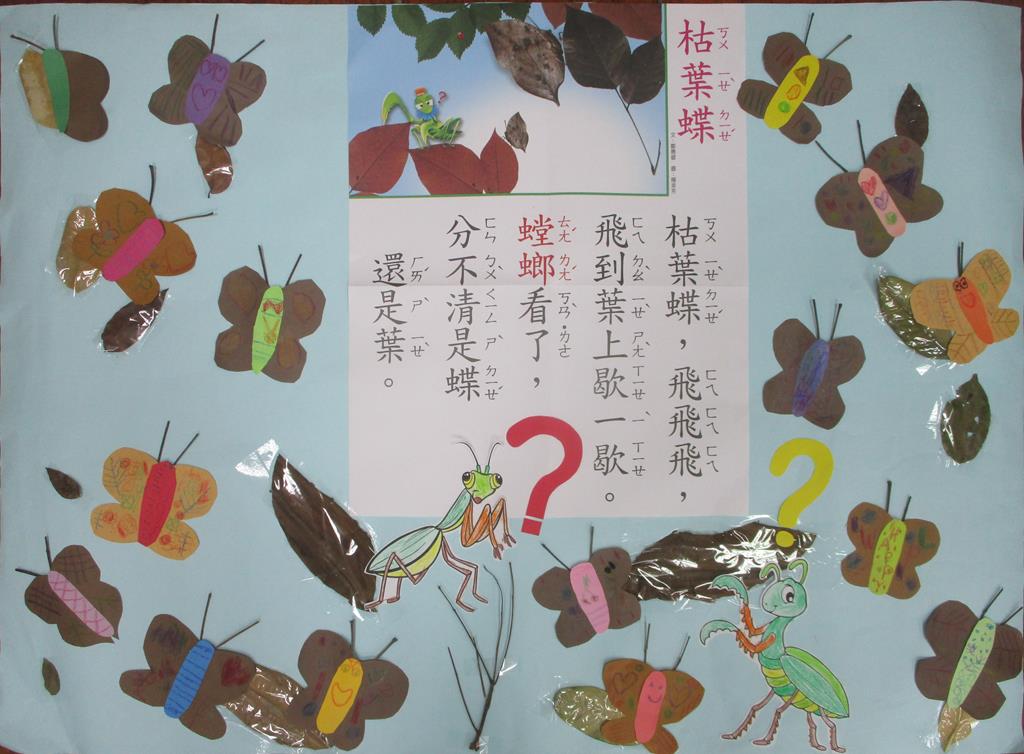 枯葉蝶
枯葉蝶，飛飛飛，
飛到葉上歇一歇。
螳螂看了，
分不清是蝶
還是葉。
?
?